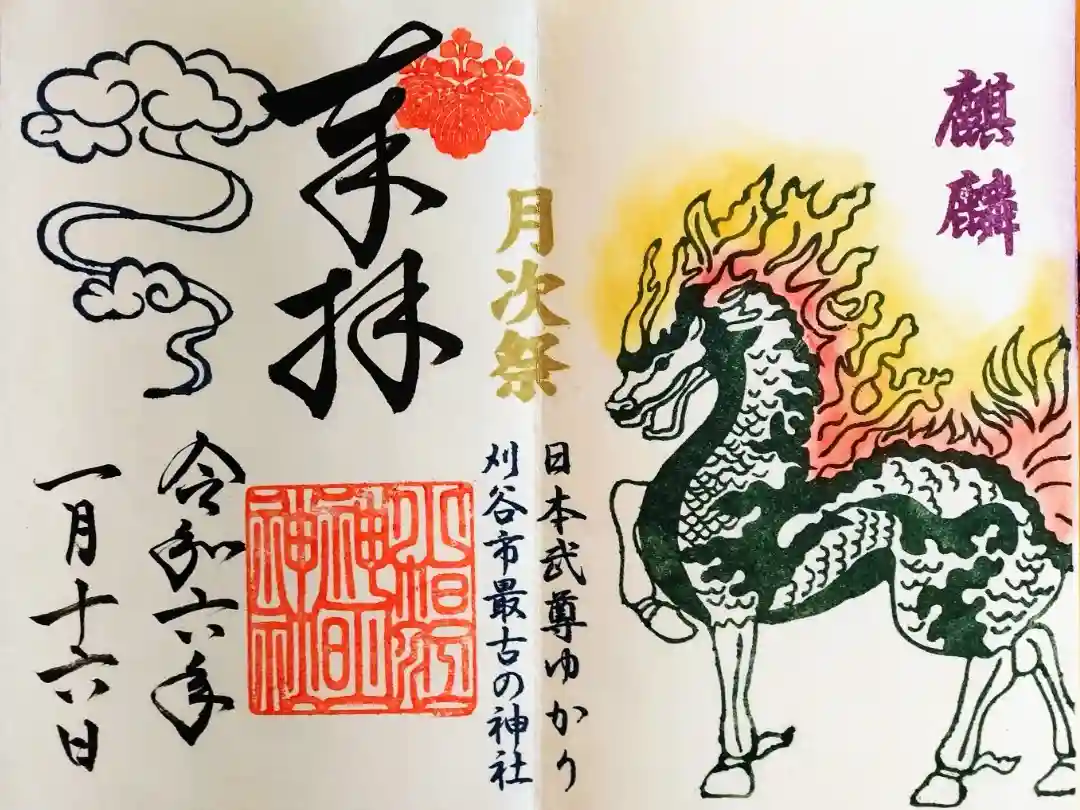 麒麟
奉拝
月次祭
日本武尊ゆかり
刈谷市最古の神社
令和六年
一月十六日